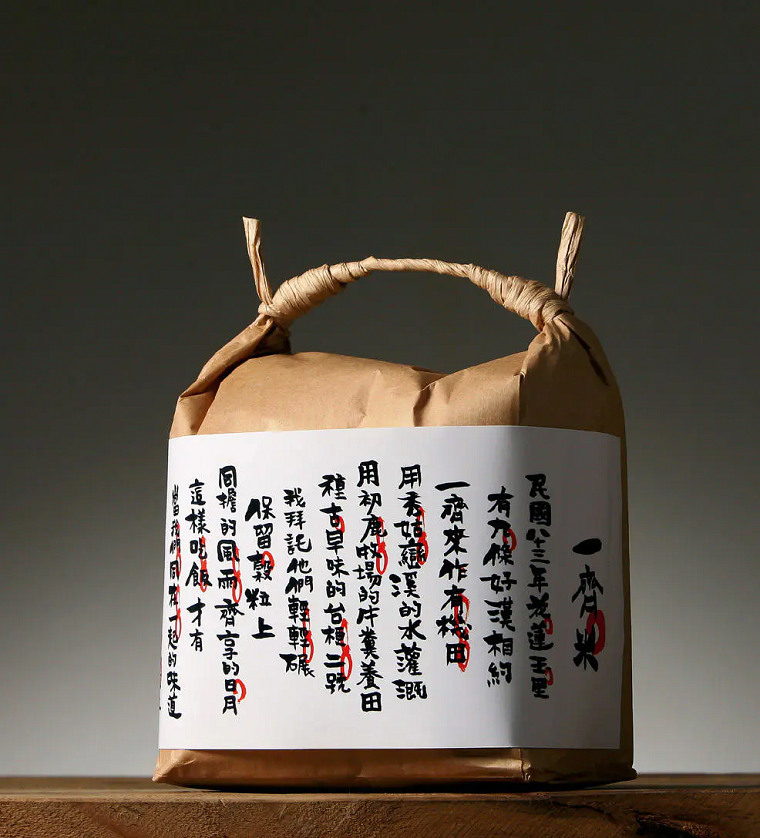 一齊米
民國八三年花蓮玉里
有九條好漢相約
一齊來作有機田
用秀姑巒溪的水灌溉
用初鹿牧場的牛糞養田
種古早味的台種二號
我拜託他們輕輕碾
保留穀粒上
同擔的風雨齊享的日月
這樣吃飯才有
當我們同在一起的味道